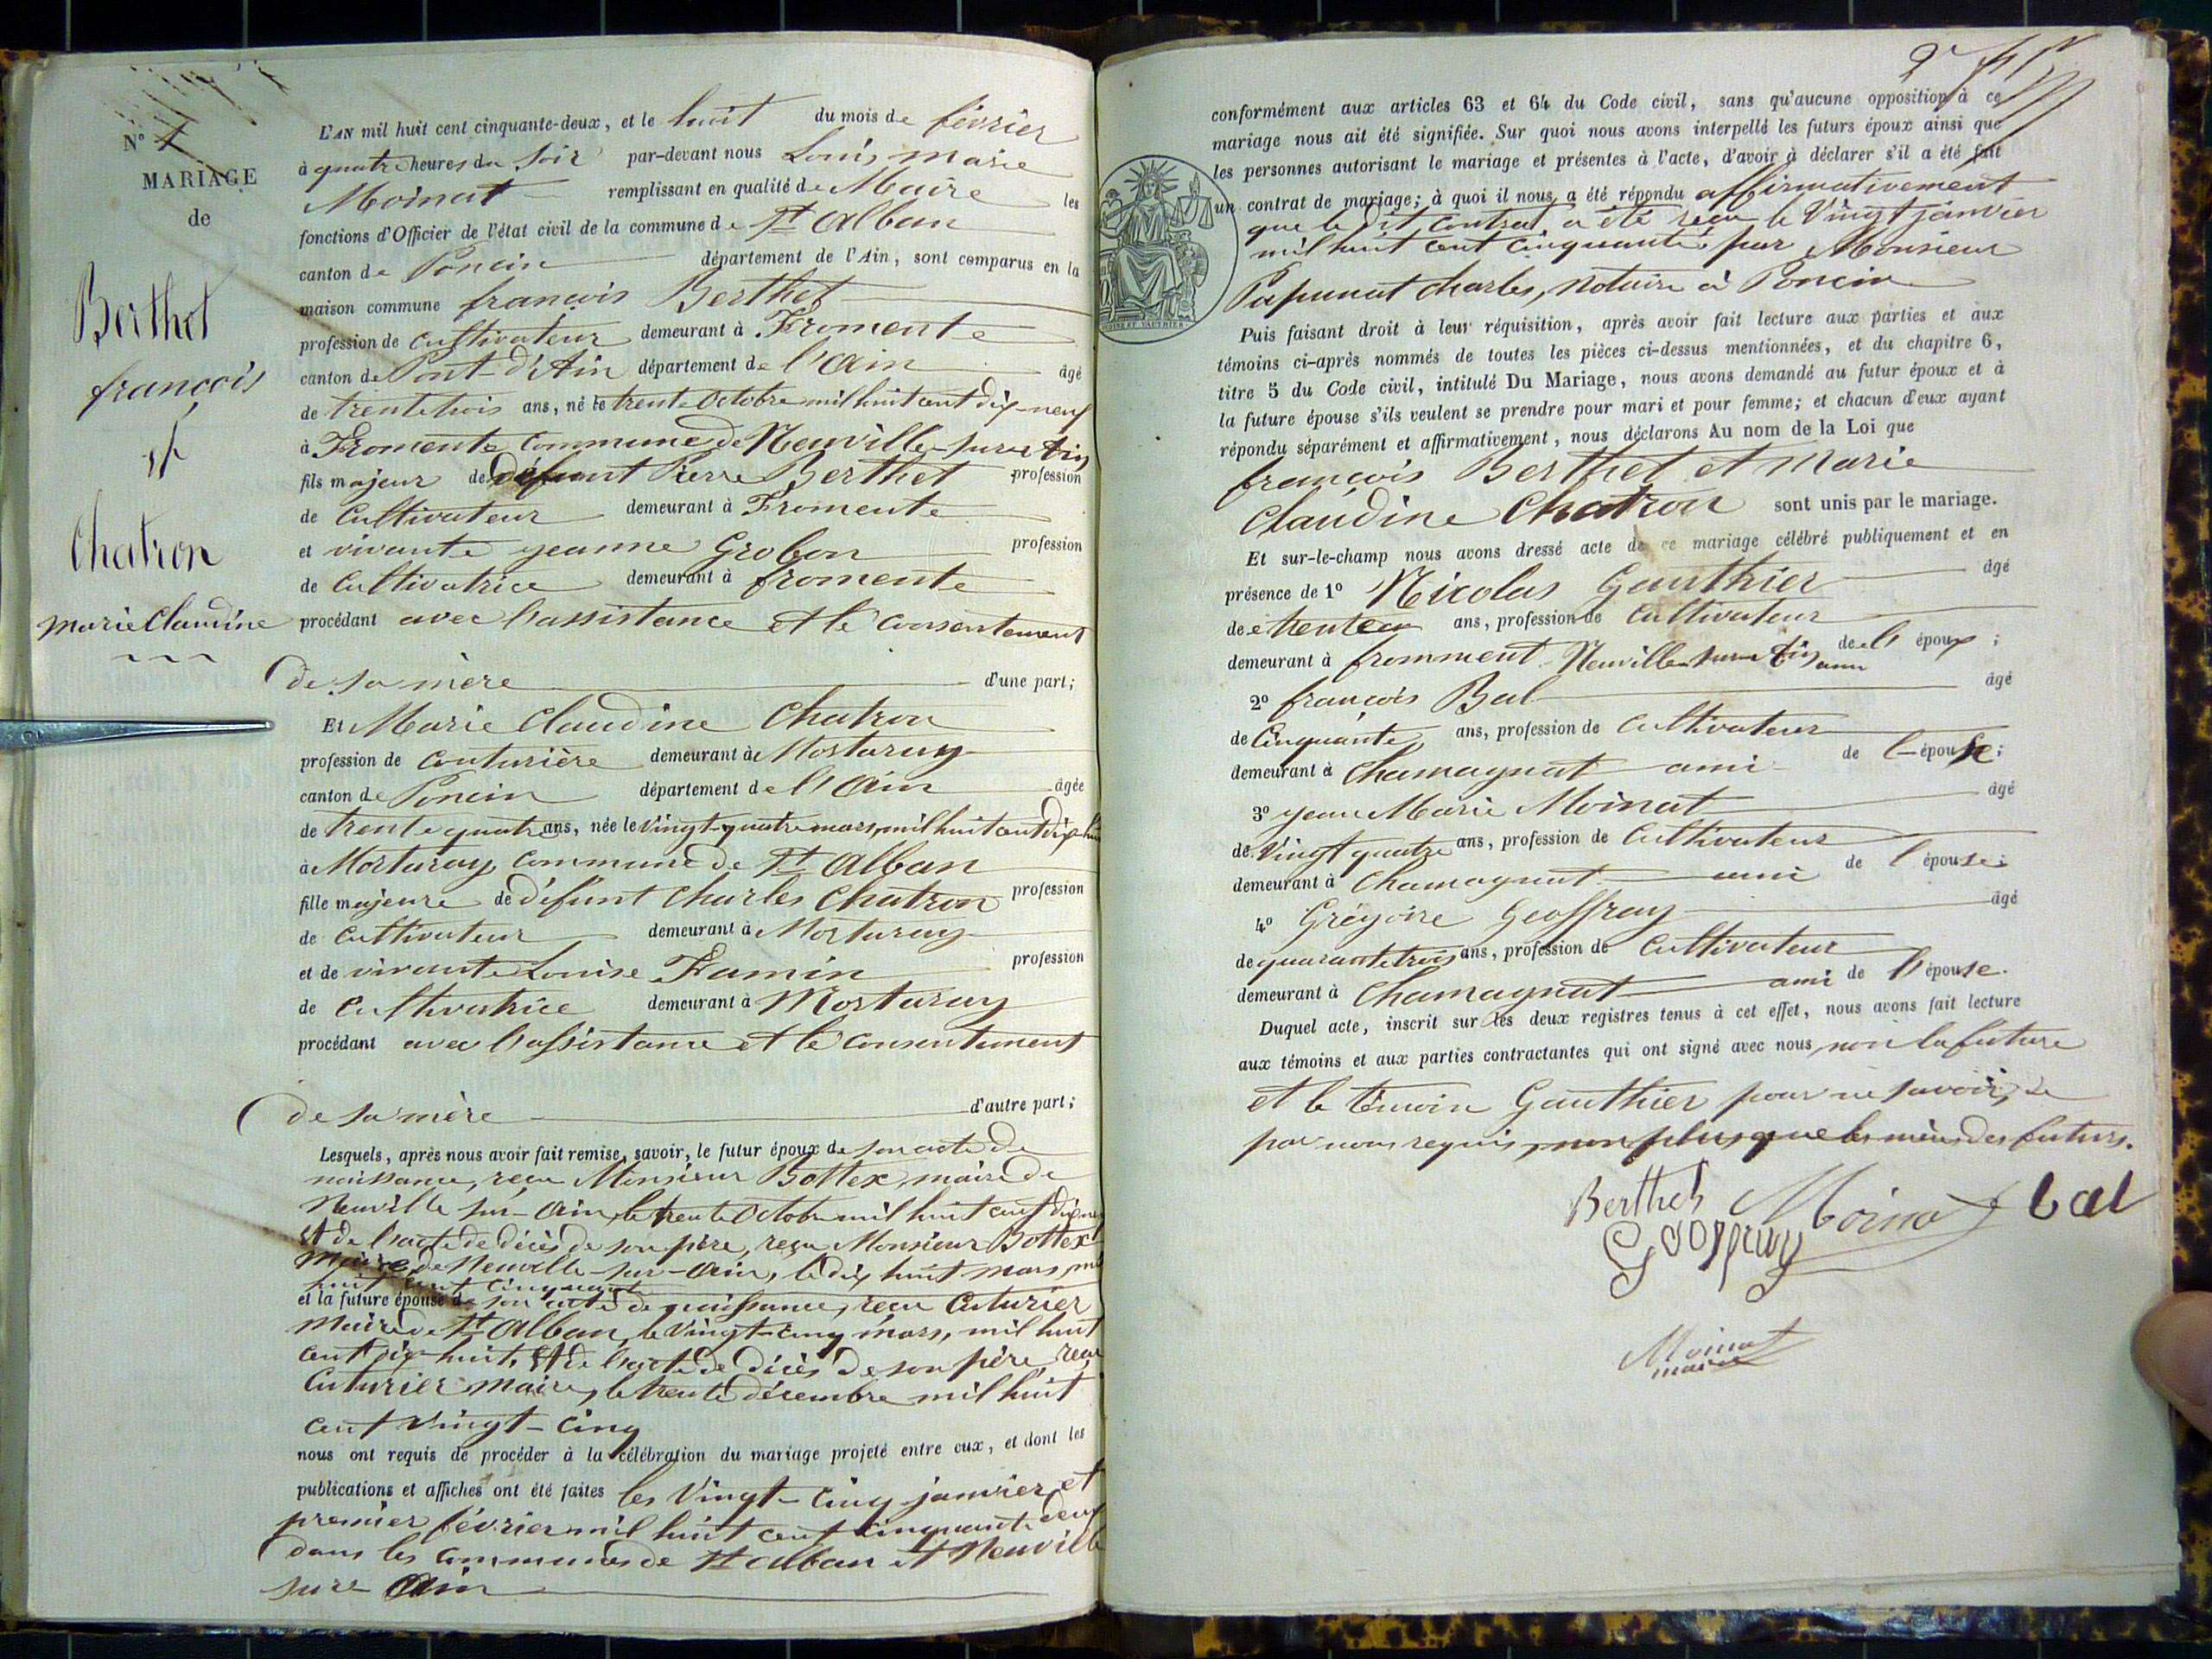 N° 1
MARIAGE
de
Berthet
françois
et
Chatron
marie Claudine
L'AN mil huit cent cinquante-deux, et le huit du mois de février
à quatre heures du Soir par-devant nous Louis marie
Moinat remplissant en qualité de Maire les
fonctions d'Officier de l'état civil de la commune de St Alban
canton de Poncin département de l'Ain, sont comparus en la
maison commune françois Berthet
profession de Cultivateur demeurant à Fromente
canton de Pont-d'Ain département de l'Ain âgé
de trente trois ans, né le trente Octobre mil huit cent dix-neuf
à Fromente Commune de Neuville sur Ain
fils majeur de défunt Pierre Berthet profession
de Cultivateur demeurant à Fromente
et vivante yeanne Grobon profession
de Cultivatrice demeurant à fromente
procédant avec l'assistance et le Consentement
de sa mère d'une part;
Et Marie Claudine Chatron
profession de Couturière demeurant à Mortaray
canton de Poncin département de l'Ain âgée
de trente quatre ans, née le vingt-quatre mars, mil huit cent dix huit
à Mortaray commune de St Alban
fille majeure de défunt Charles Chatron profession
de Cultivateur demeurant à Mortaray
et de vivante Louise Framin profession
de Cultivatrice demeurant à Mortaray
procédant avec l'assistance et le Consentement
de sa mère d'autre part;
Lesquels, après nous avoir fait remise, savoir, le futur époux de son acte de
naissance, reçu Monsieur Bottex, maire de
Neuville sur-Ain, le trente Octobre mil huit cent dix neuf
et de l'acte de décès de son père, reçu Monsieur Bottex
Maire de Neuville-sur-Ain, le dix huit mars, mil
huit cent cinquante
et la future épouse de son acte de naissance, reçu Cuturier
Maire de St Alban, le vingt-cinq mars, mil huit
cent dix-huit, et de l'acte de décès de son père reçu
Cuturier Maire, le trente décembre mil huit
cent vingt-cinq
nous ont requis de procéder à la célébration du mariage projeté entre eux, et dont les
publications et affiches ont été faites les vingt-cinq janvier et
premier février mil huit cent cinquante deux
dans les communes de St Alban et Neuville
sur Ain
2
conformément aux articles 63 et 64 du Code civil, sans qu'aucune opposition à ce
mariage nous ait été signifiée. Sur quoi nous avons interpellé les futurs époux ainsi que
les personnes autorisant le mariage et présentes à l'acte, d'avoir à déclarer s'il a été fait
un contrat de mariage; à quoi il nous a été répondu affirmativement
que le dit contrat a été reçu le vingt janvier
mil huit cent cinquante par Monsieur
Papunat Charles, Notaire à Poncin
Puis faisant droit à leur réquisition, après avoir fait lecture aux parties et aux
témoins ci-après nommés de toutes les pièces ci-dessus mentionnées, et du chapitre 6,
titre 5 du Code civil, intitulé Du Mariage, nous avons demandé au futur époux et à
la future épouse s'ils veulent se prendre pour mari et pour femme; et chacun d'eux ayant
répondu séparément et affirmativement, nous déclarons Au nom de la Loi que
françois Berthet et Marie
Claudine Chatron sont unis par le mariage.
Et sur-le-champ nous avons dressé acte de ce mariage célébré publiquement et en
présence de 1° Nicolas Gauthier âgé
de ans, profession de Cultivateur
demeurant à fromment Neuville sur Ain ami de l'époux;
2° françois Bal âgé
de Cinquante ans, profession de Cultivateur
demeurant à Chamagnat ami de l'épouse;
3° yean Marie Moinat âgé
de Vingt quatre ans, profession de Cultivateur
demeurant à Chamagnat ami de l'épouse;
4° Grégoire Geoffray âgé
de quarante trois ans, profession de Cultivateur
demeurant à Chamagnat ami de l'épouse.
Duquel acte, inscrit sur les deux registres tenus à cet effet, nous avons fait lecture
aux témoins et aux parties contractantes qui ont signé avec nous, non la future
et le témoin Gauthier pour ne savoir, de
par nous requis, non plus que les mères des futurs.
Berthet Moinat bal
Geoffray
Moinat
maire